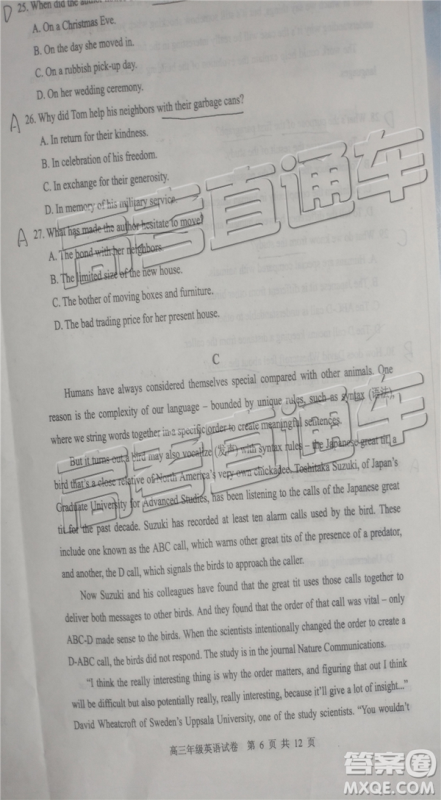 D 25. When did the author
A. On a Christmas Eve.
B. On the day she moved in.
C. On a rubbish pick-up day.
D. On her wedding ceremony.
A 26. Why did Tom help his neighbors with their garbage cans?
A. In return for their kindness.
B. In celebration of his freedom.
C. In exchange for their generosity.
D. In memory of his military service.
A 27. What has made the author hesitate to move?
A. The bond with her neighbors.
B. The limited size of the new house.
C. The bother of moving boxes and furniture.
D. The bad trading price for her present house.
C
Humans have always considered themselves special compared with other animals. One
reason is the complexity of our language – bounded by unique rules, such as syntax (语法),
where we string words together in a specific order to create meaningful sentences.
But it turns out a bird may also vocalize (发声) with syntax rules – the Japanese great tit, a
bird that's a close relative of North America's very own chickadee. Toshitaka Suzuki, of Japan's
Graduate University for Advanced Studies, has been listening to the calls of the Japanese great
tit for the past decade. Suzuki has recorded at least ten alarm calls used by the bird. These
include one known as the ABC call, which warns other great tits of the presence of a predator,
and another, the D call, which signals the birds to approach the caller.
Now Suzuki and his colleagues have found that the great tit uses those calls together to
deliver both messages to other birds. And they found that the order of that call was vital – only
ABC-D made sense to the birds. When the scientists intentionally changed the order to create a
D-ABC call, the birds did not respond. The study is in the journal Nature Communications.
"I think the really important thing is why the order matters, and figuring that out I think
will be difficult but also potentially really, really interesting because it'll give a lot of insight..."
David Wheatcroft of Sweden's Uppsala University, one of the study scientists. "You wouldn't
高三年级英语试卷 第 6 页 共 12 页
高考直通车
高考直通车
答案圈
MXQE.COM